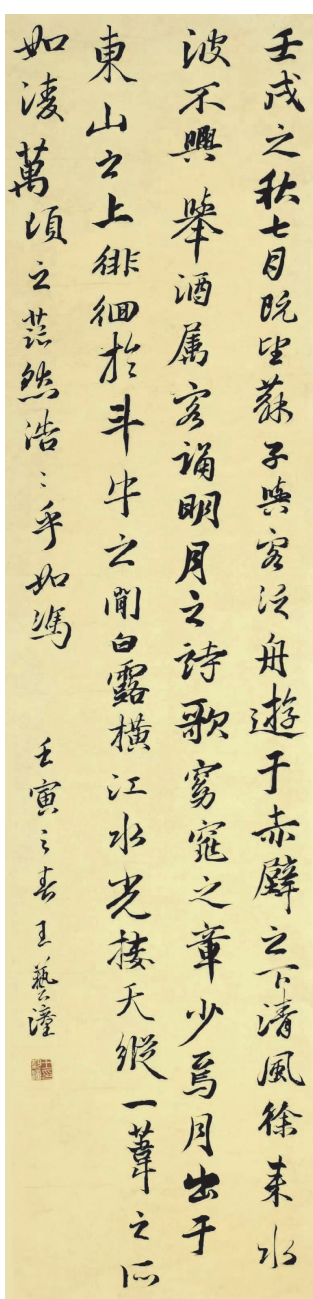 壬戌之秋七月既望蘇子與客泛舟遊于赤壁之下清風徐来水
波不興舉酒属客誦明月之詩歌窈窕之章少焉月出于
東山之上徘徊於斗牛之間白露橫江水光接天縱一葦之所
如凌萬頃之茫然浩〻乎如馮
壬寅之春王藝潼